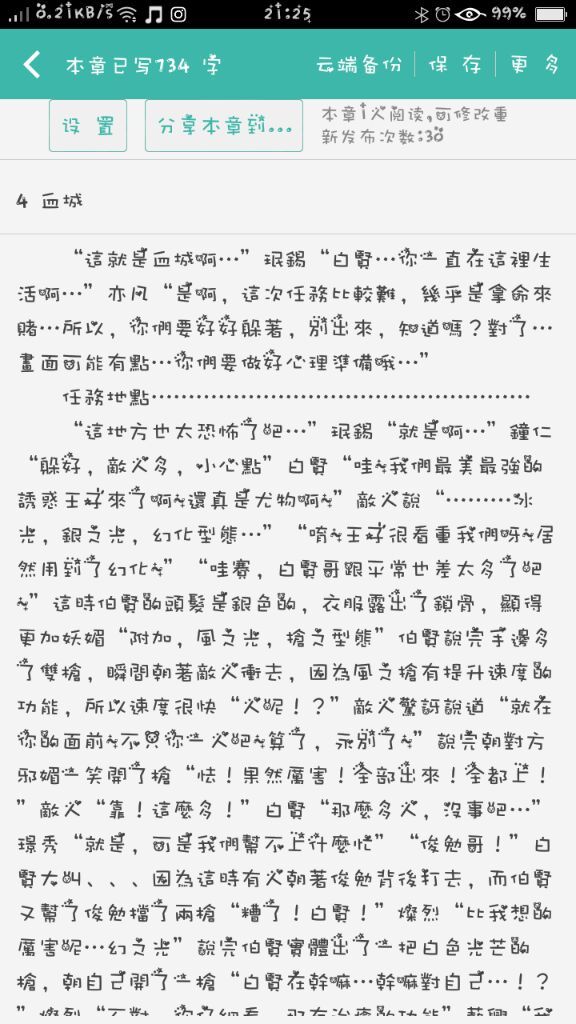 0.21KB/s 21:25 99%
本章已写734 字 云端备份 保 存 更 多
设 置 分享本章到...
本章1人阅读,可修改重
新发布次数:30
4 血城
“這就是血城啊…”珉錫“白賢…你一直在這裡生
活啊…”亦凡“是啊，這次任務比較難，幾乎是拿命來
賭…所以，你們要好好躲著，別出來，知道嗎？對了…
畫面可能有點…你們要做好心理準備哦…”
任務地點………………………………………………
“這地方也太恐怖了吧…”珉錫“就是啊…”鐘仁
“躲好，敵人多，小心點”白賢“哇~我們最美最強的
誘惑王好來了啊~還真是尤物啊~”敵人說“………冰
光，銀之光，幻化型態…”“唷~王好很看重我們呀~居
然用到了幻化~”“哇賽，白賢哥跟平常也差太多了吧
~”這時伯賢的頭髮是銀色的，衣服露出了鎖骨，顯得
更加妖媚“附加，風之光，搶之型態”伯賢說完手邊多
了雙搶，瞬間朝著敵人衝去，因為風之搶有提升速度的
功能，所以速度很快“人呢！？”敵人驚訝說道“就在
你的面前~不只你一人吧~算了，永別了~”說完朝對方
邪媚一笑開了搶“怯！果然厲害！全部出來！全都上！
”敵人“靠！這麼多！”白賢“那麼多人，沒事吧…”
璟秀“就是，可是我們幫不上什麼忙”“俊勉哥！”白
賢大叫、、、因為這時有人朝著俊勉背後打去，而伯賢
又幫了俊勉擋了兩搶“糟了！白賢！”燦烈“比我想的
厲害呢…幻之光”說完伯賢實體出了一把白色光芒的
搶，朝自己開了一搶“白賢在幹嘛…幹嘛對自己…！？
”燦烈“不對，你仔細看，那有治癒的功能”藝興“我